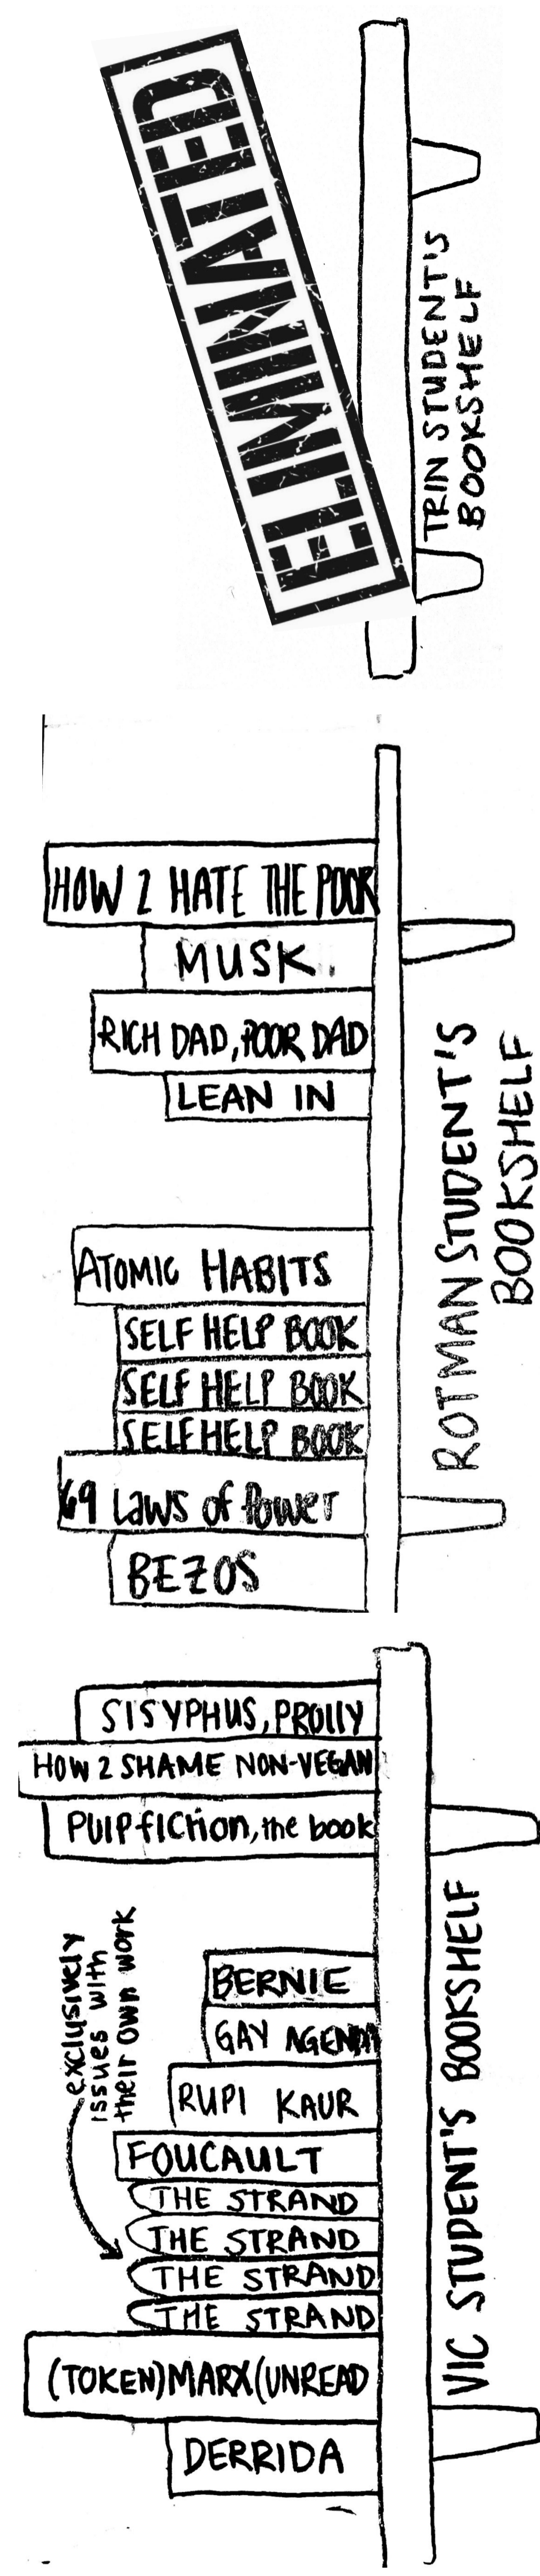 ELIMINATED
TRIN STUDENT'S
BOOKSHELF
HOW 2 HATE THE POOR
MUSK
RICH DAD, POOR DAD
LEAN IN
ATOMIC HABITS
SELF HELP BOOK
SELF HELP BOOK
SELF HELP BOOK
69 Laws of Power
BEZOS
ROTMAN STUDENT'S
BOOKSHELF
SISYPHUS, PROLLY
HOW 2 SHAME NON-VEGAN
PULP fiction, the book
BERNIE
GAY AGENDA
RUPI KAUR
FOUCAULT
THE STRAND
THE STRAND
THE STRAND
THE STRAND
(TOKEN) MARX (UNREAD
DERRIDA
exclusively
issues with
their own work
VIC STUDENT'S BOOKSHELF